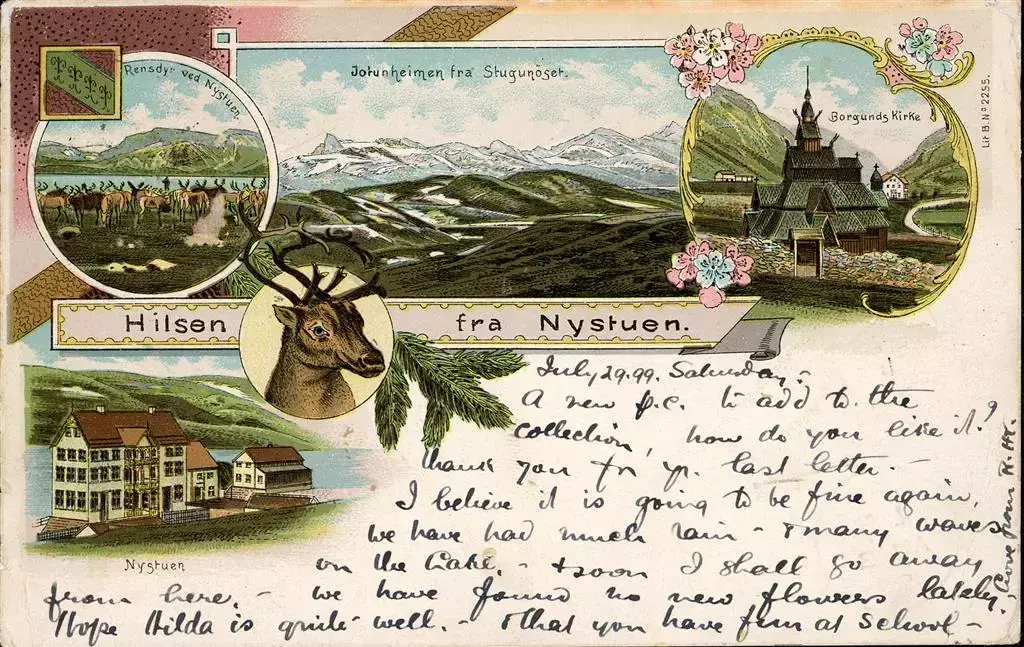 Rensdyr ved Nystuen.
Jotunheimen fra Stugunöset.
Borgunds Kirke
Lit B. No 2255.
Hilsen fra Nystuen.
Nystuen
July 29.99. Saturday.-
A new p.c. to add to the
collection, how do you like it?
Thank you for yr. last letter.-
I believe it is going to be fine again,
we have had much rain - & many waves
on the Lake. - & soon I shall go away
from here. - we have found no new flowers lately.-
Hope Hilda is quite well. - & that you have fun at School -
Love from